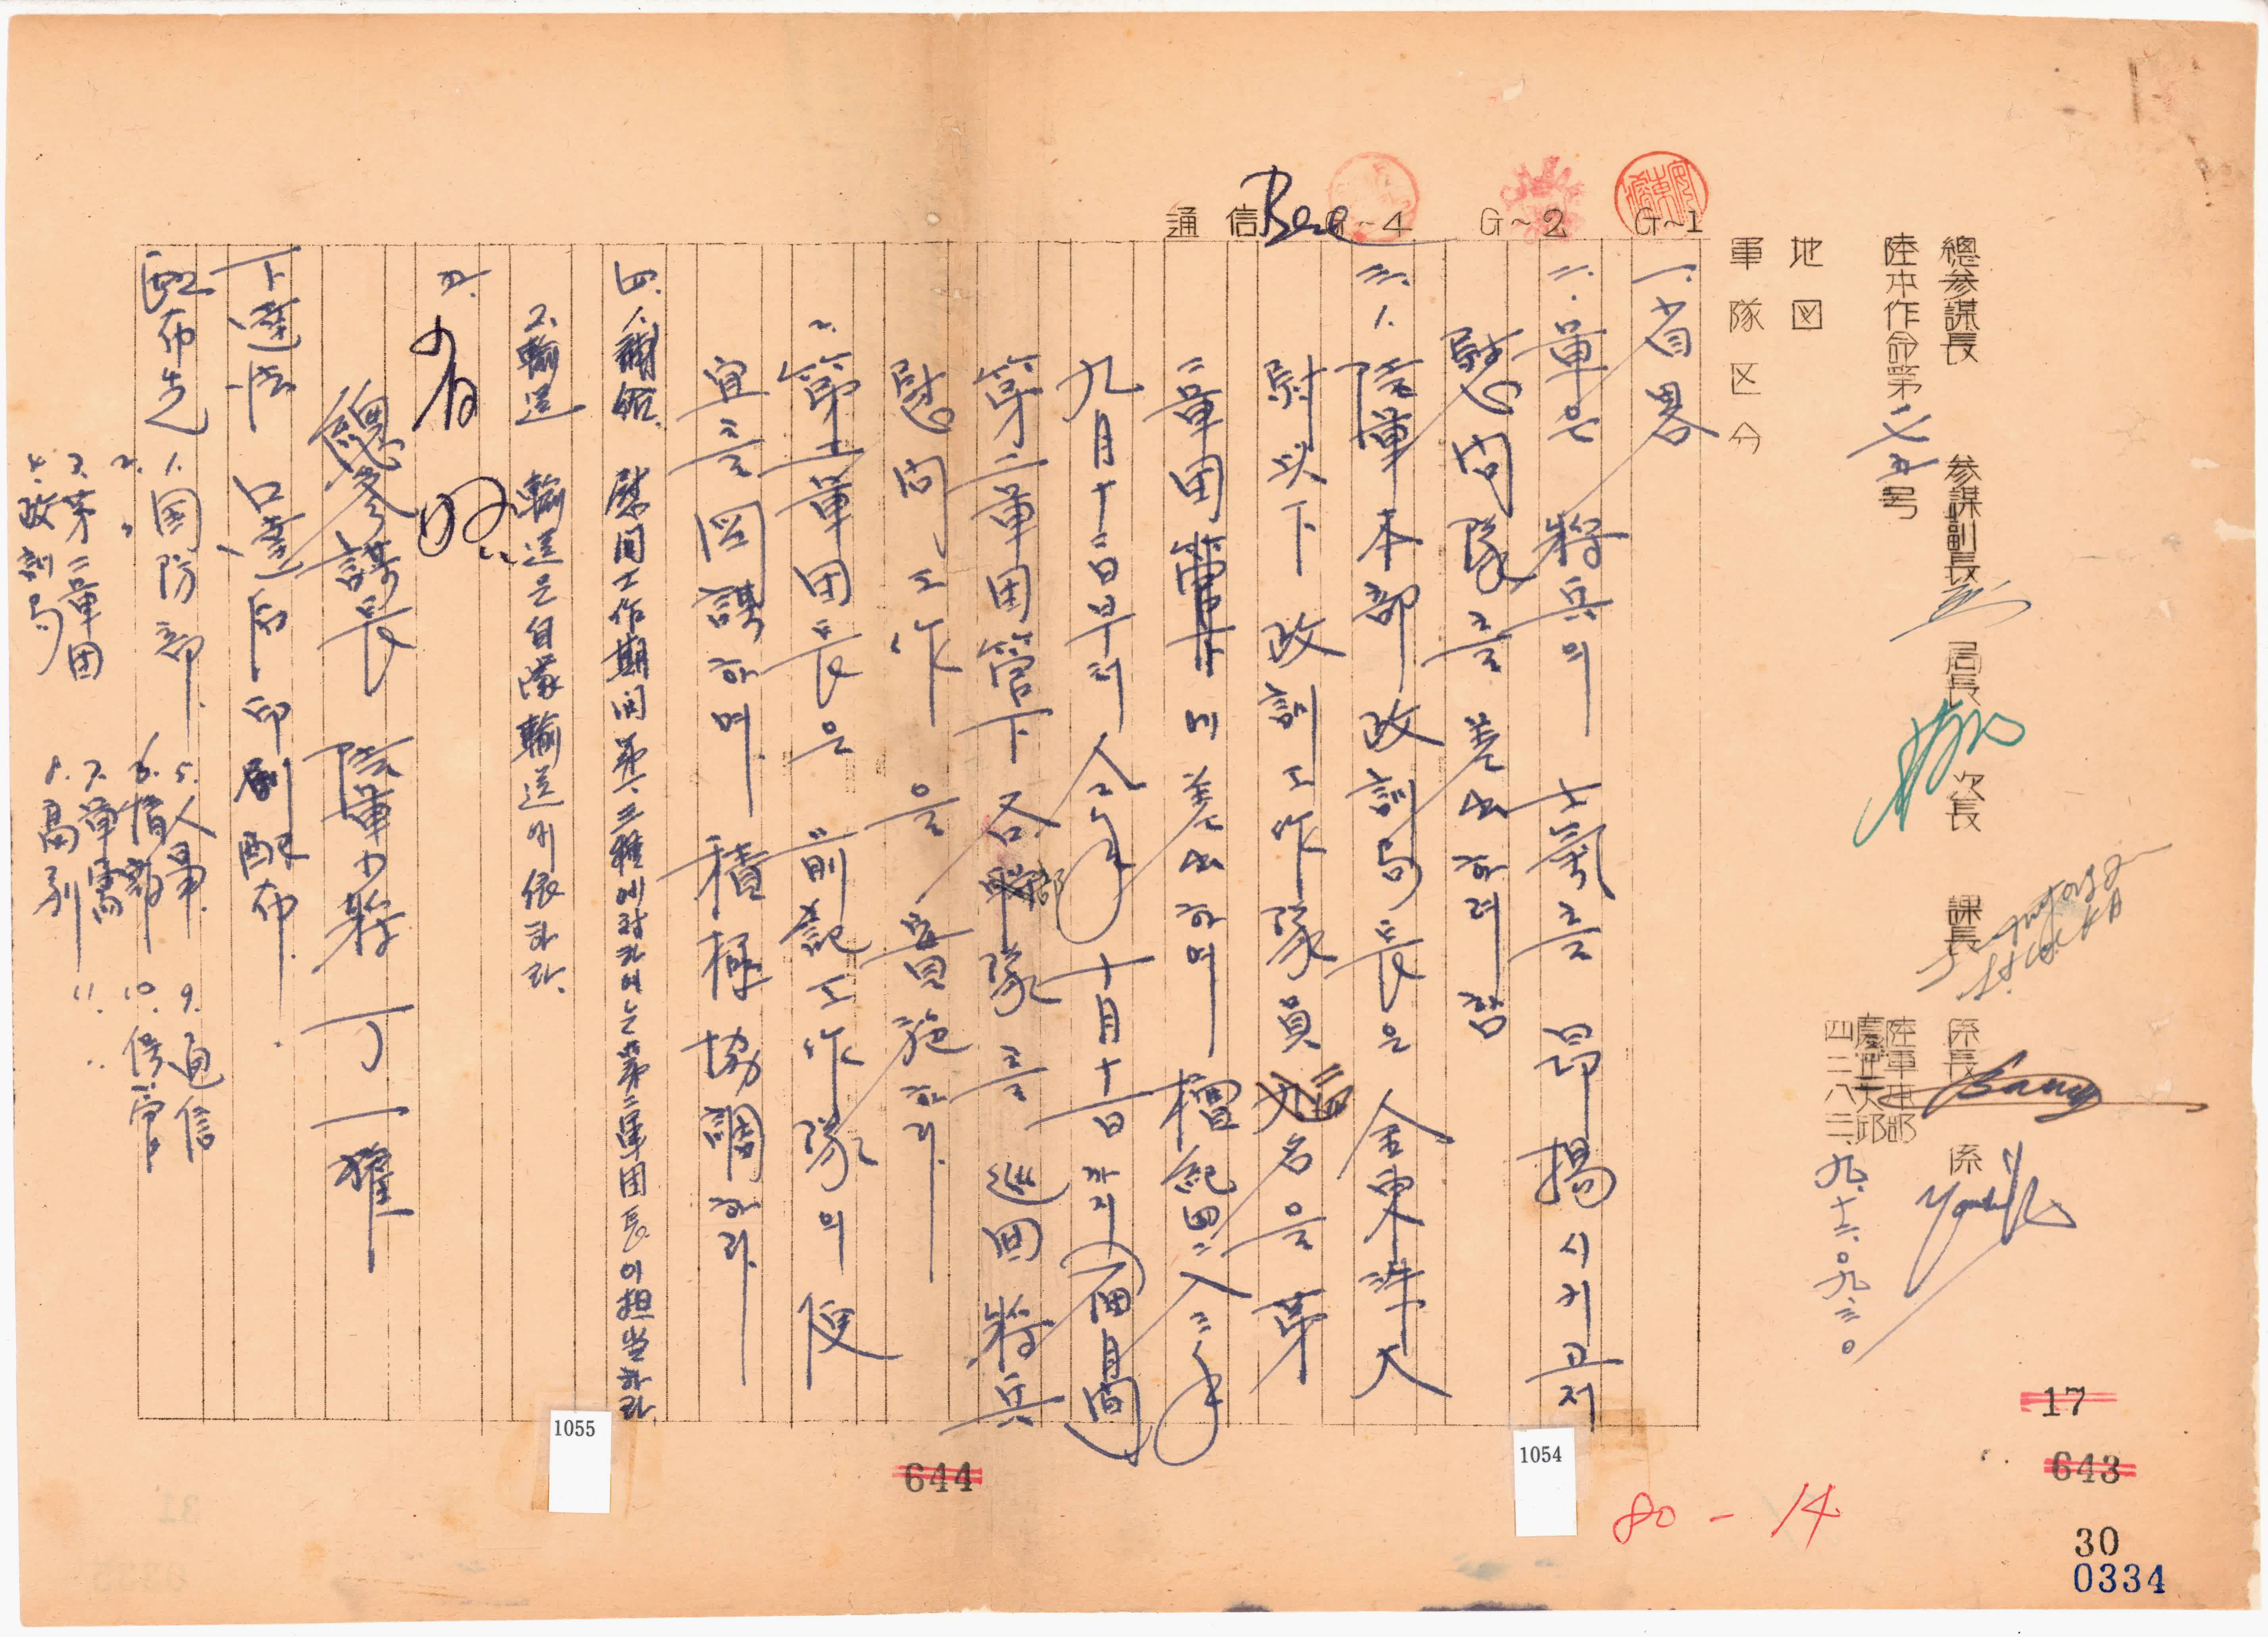 總參謀長 參謀副長 局長 次長 課長 係長 係
陸本作命第二七五号
陸軍本部
慶北大邱
四二八三、九、十二、〇九三〇
地図
軍隊区分
G~1
G~2
G~4
通信
一. 省略
二. 軍은 將兵의 士氣를 昻揚시키고저
慰問隊를 差出하려 함
三. 1. 陸軍本部 政訓局長은 金東洙 大
尉以下 政訓工作隊員 名을 第
二軍団에 差出하며 檀紀四二八三年
九月十二日부터 仝年 十月十一日까지 (一個月間)
第二軍団管下 各部隊를 巡回 將兵
慰問工作을 實施하라.
2. 第二軍団長은 前記工作隊의 便
宜를 図謀하며 積極協調하라.
四. 1. 補給. 慰問工作期間 第一、三種에 있어서는 第二軍団長이 担当하라.
2. 輸送 輸送은 自隊輸送에 依하라.
五.
總參謀長 陸軍少將 丁一權
下達法 口達后 印刷配布.
配布先 1. 国防部. 5. 人事. 9. 通信
2. 〃 6. 情報 10. 俊官
3. 第二軍団 7. 軍需 11. 〃
4. 政訓局 8. 高級
1055
1054
644
17
643
80-14
30
0334